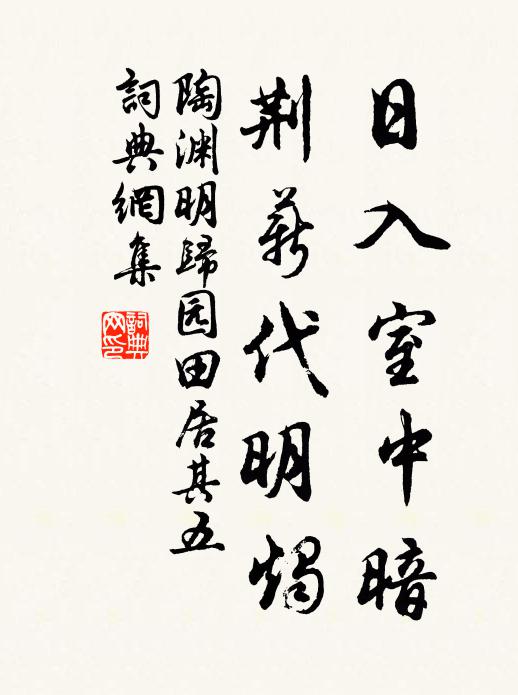 日入室中暗
荆薪代明燭
陶渊明歸园田居其五
詞典網集
詞典网印